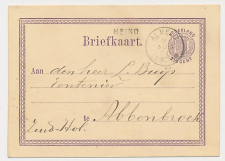 HEINO
Briefkaart.
Aan den heer L. Buijs
Abbenbroek
Zuid-Hol.